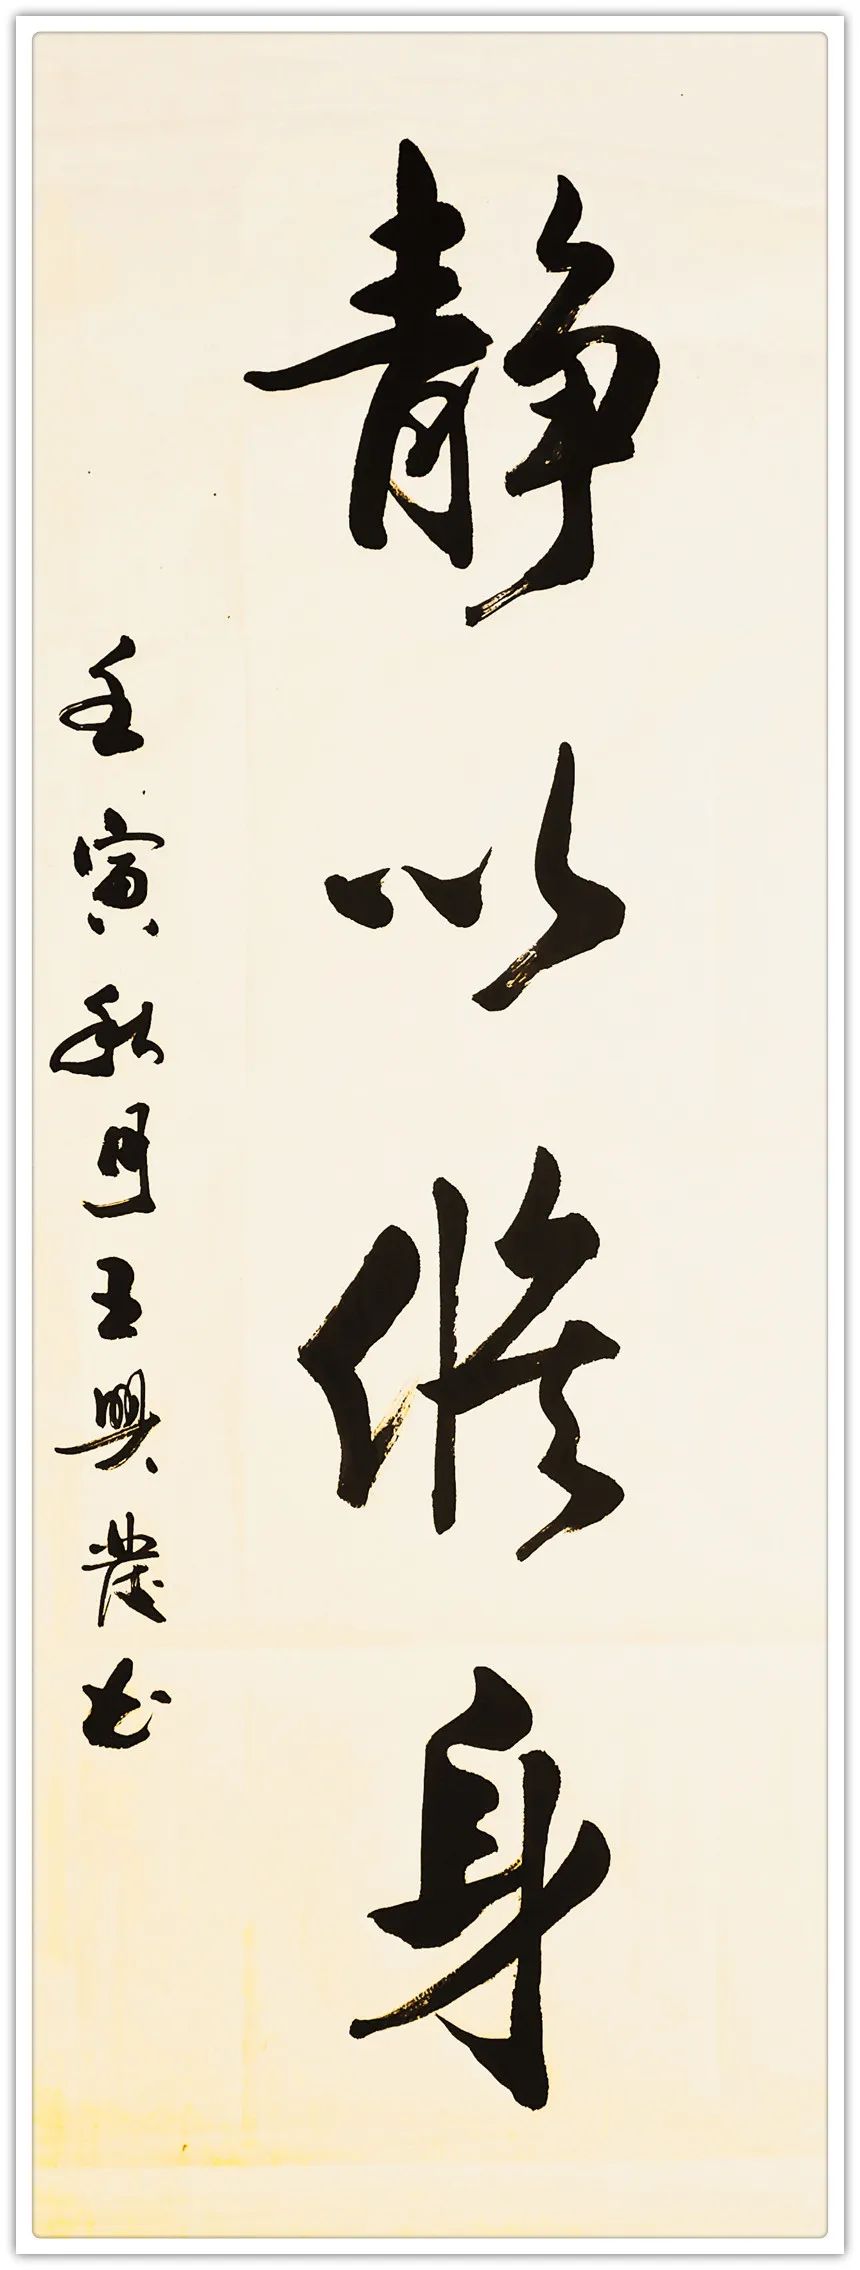 静以修身
壬寅秋月王興農书